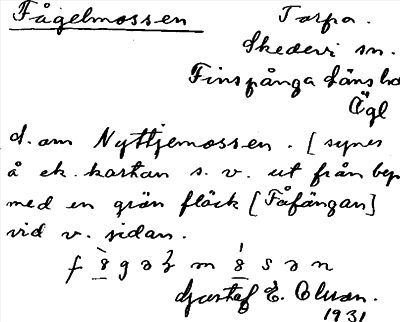 Fågelmossen Torpa.
Skedevi sn.
Finspånga läns hd
Ögl
d. om Nyttjemossen. [synes
å ek. kartan s. v. ut från bep
med en grön fläck [Fåfängan]
vid v. sidan.
Gustaf E. Olsson.
1931